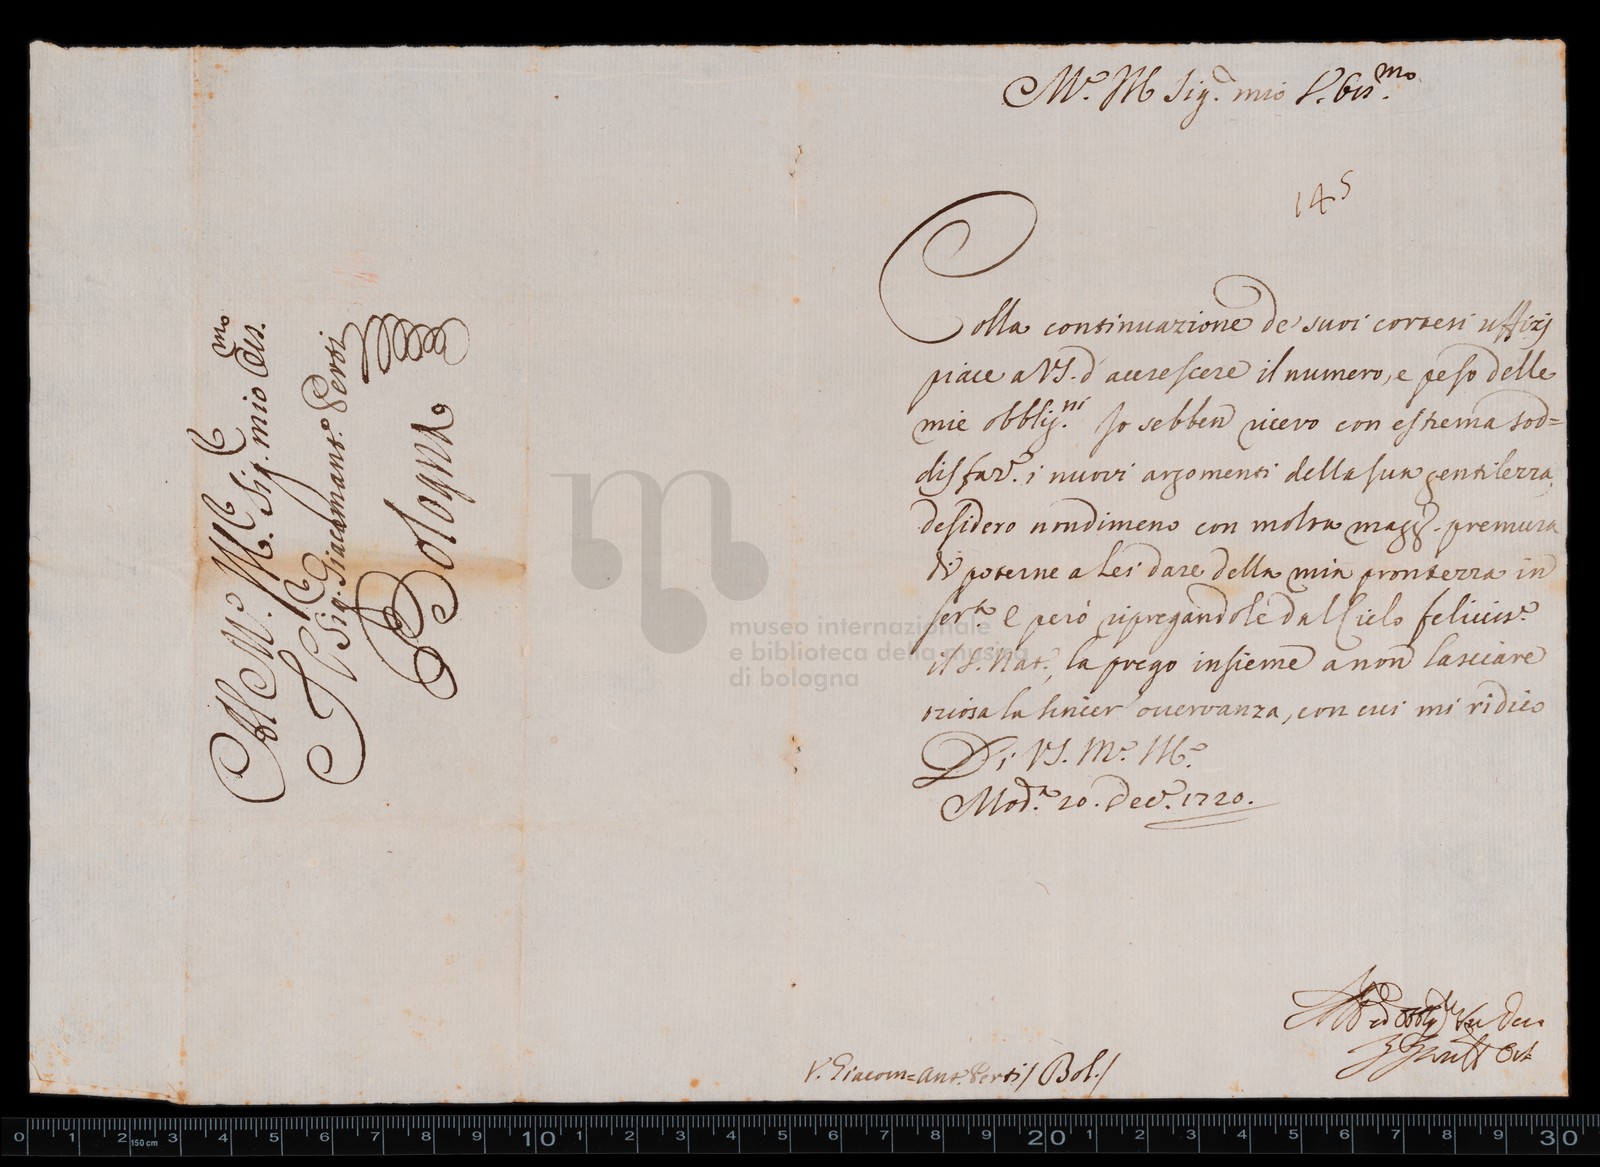 All M.to M.to
Sig. mio Oss.mo
Il Sig. Giacom'Ant.o Perti
Bologna
M.to M Sig.re mio P. Oss.mo
145
Colla continuazione de' suoi cortesi uffizj
piace a VS. d'accrescere il numero, e peso delle
mie obblig.ni Io sebben ricevo con estrema sod=
disfaz.e i nuovi argomenti della sua gentilezza,
desidero nondimeno con molta magg.r premura
di poterne a Lei dare della mia prontezza in
ser.la E però ripregandole dal Cielo feliciss.e
il S. Nat.e, la prego insieme a non lasciare
oziosa la sincer' osservanza, con cui mi ridico
Di VS. M.to M.to
Mod.a 20. Dec.e 1720.
museo internazionale
e biblioteca della musica
di bologna
S. Giacom=Ant.o Perti / Bol. /
0 1 2 150 cm 3 4 5 6 7 8 9 10 1 2 3 4 5 6 7 8 9 20 1 2 3 4 5 6 7 8 9 30